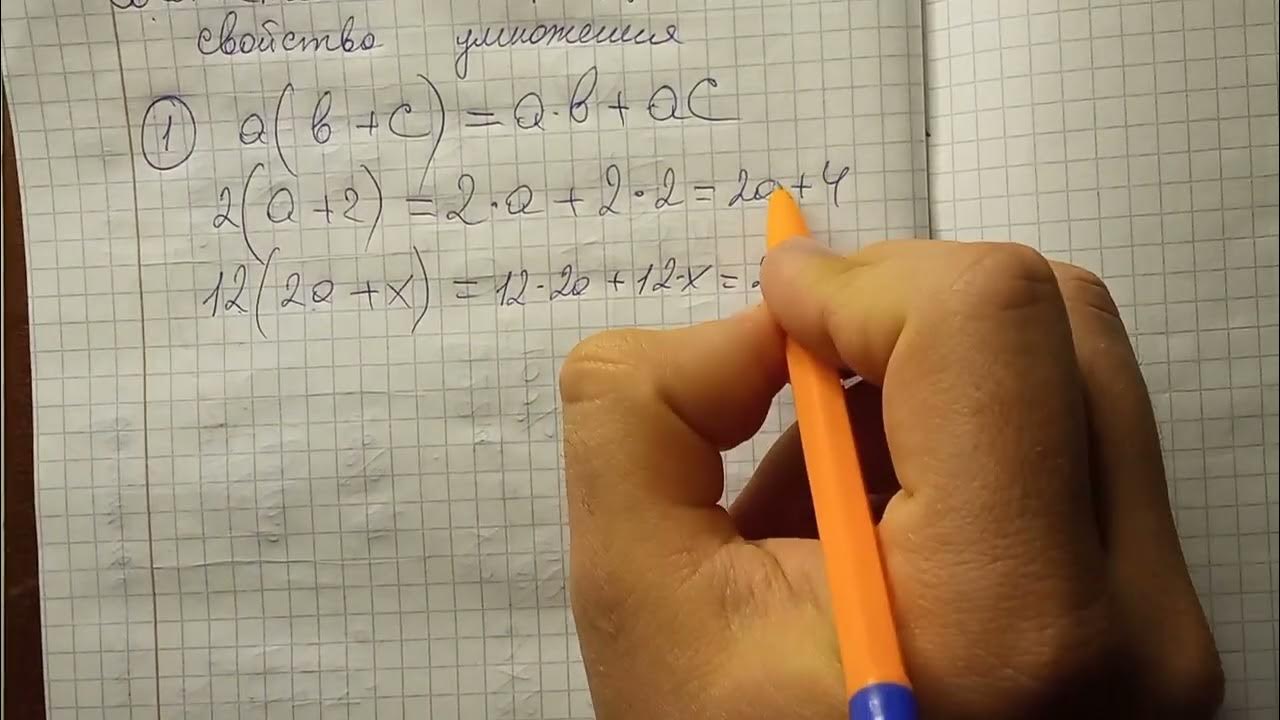 свойство умножения
1 a(в+c)=a·в+ac
2(a+2)=2·a+2·2=2a+4
12(2a+x)=12·2a+12·x=2